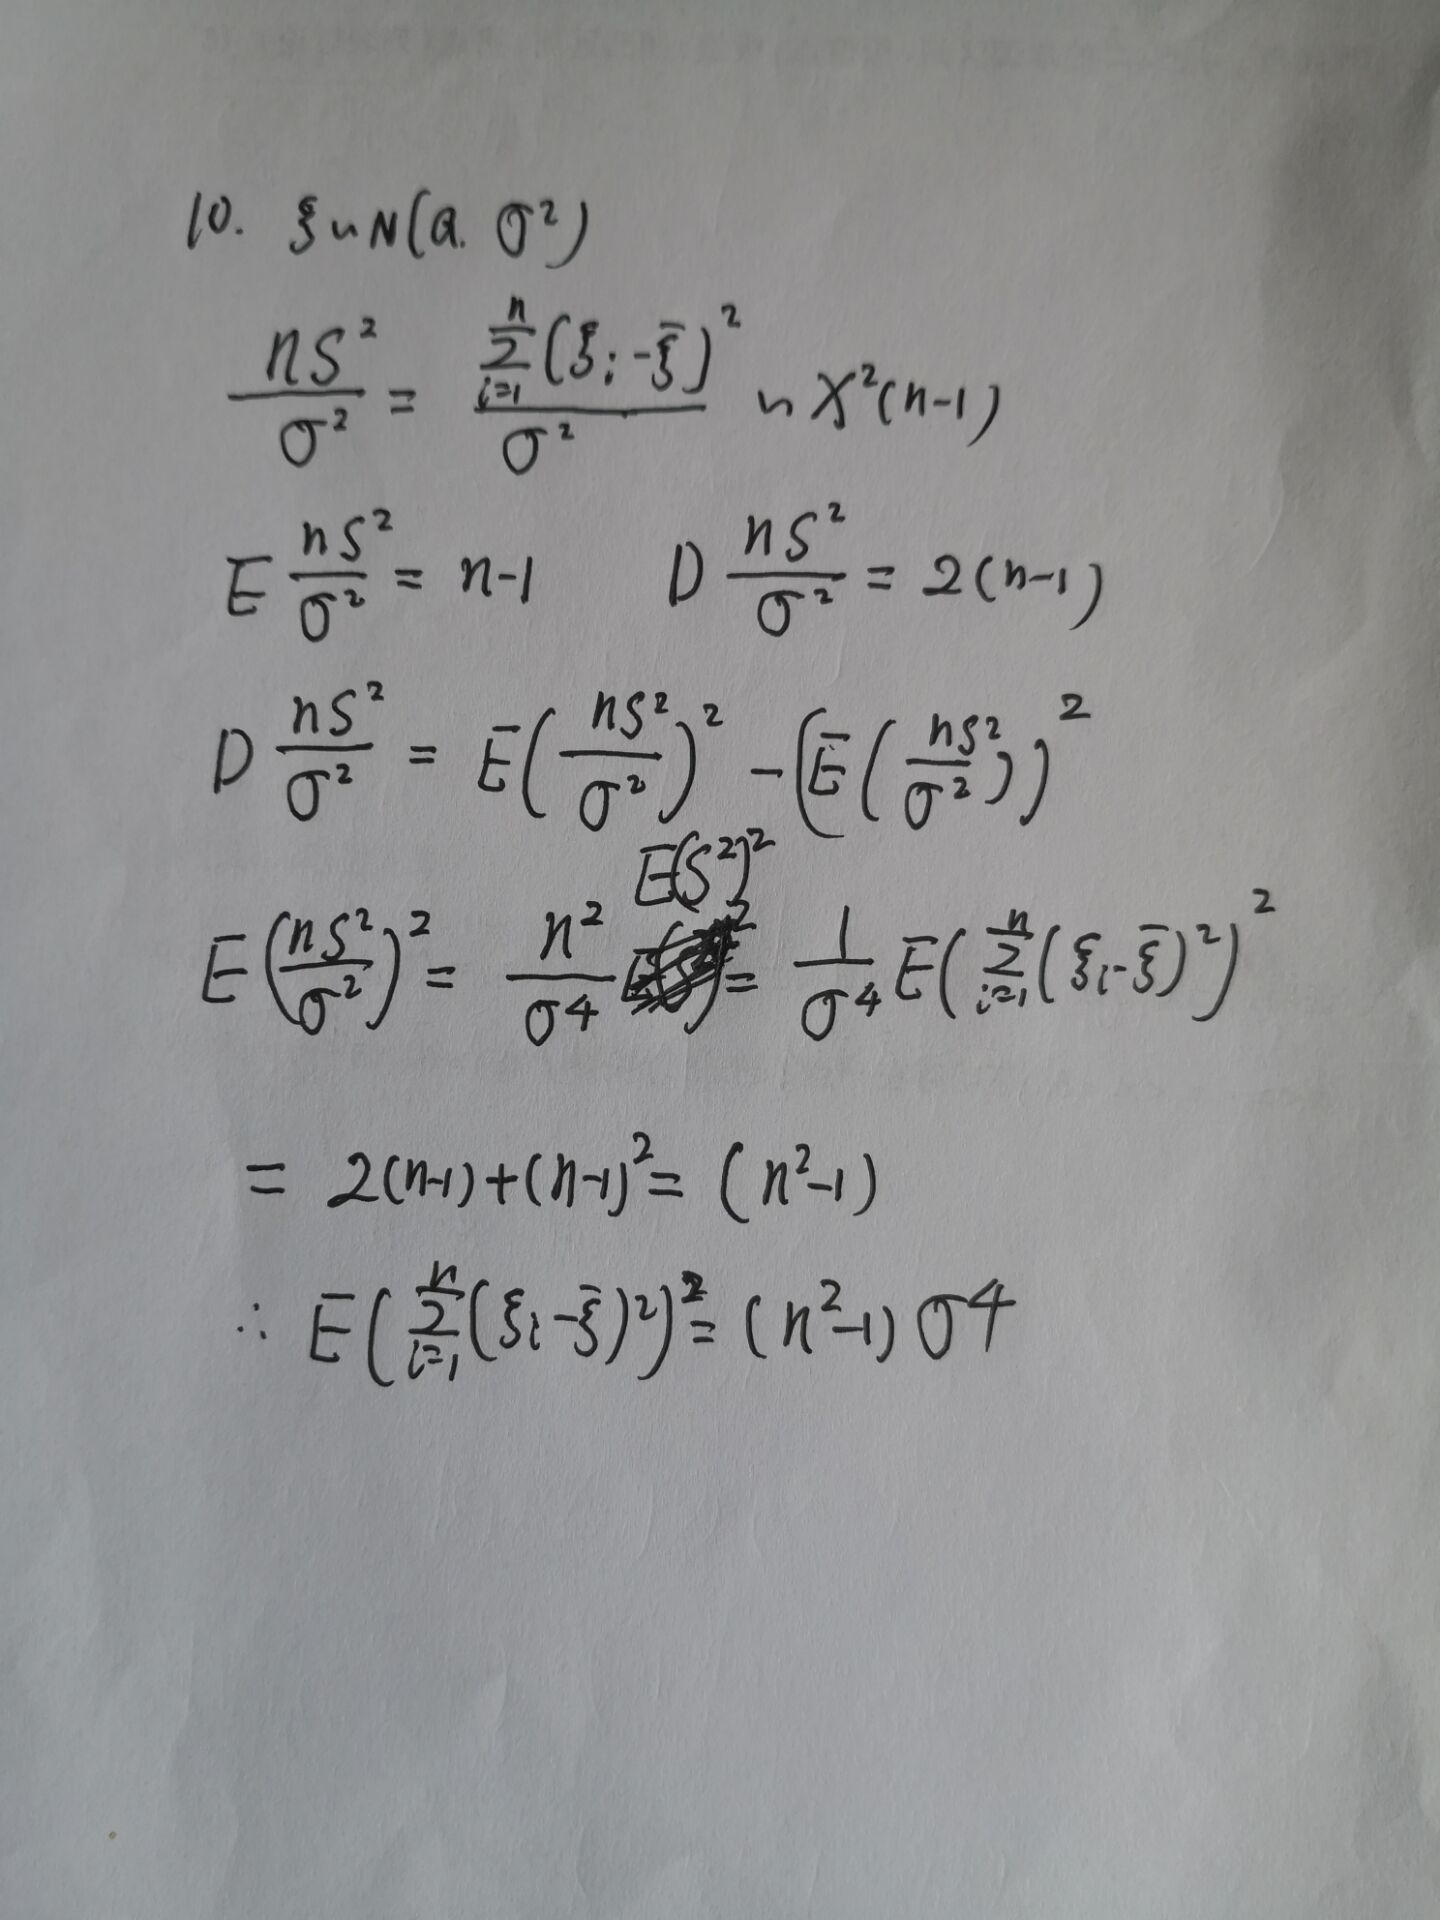 10. ξ ~ N(a. σ²)
nS²/σ² = ∑ⁿᵢ₌₁(ξᵢ-ξ̄)²/σ² ~ X²(n-1)
E nS²/σ² = n-1 D nS²/σ² = 2(n-1)
D nS²/σ² = E(nS²/σ²)² - (E(nS²/σ²))²
E(nS²/σ²)² = n²/σ⁴ E(S²)² = 1/σ⁴ E(∑ⁿᵢ₌₁(ξᵢ-ξ̄)²)²
= 2(n-1)+(n-1)² = (n²-1)
∴ E(∑ⁿᵢ₌₁(ξᵢ-ξ̄)²)² = (n²-1)σ⁴